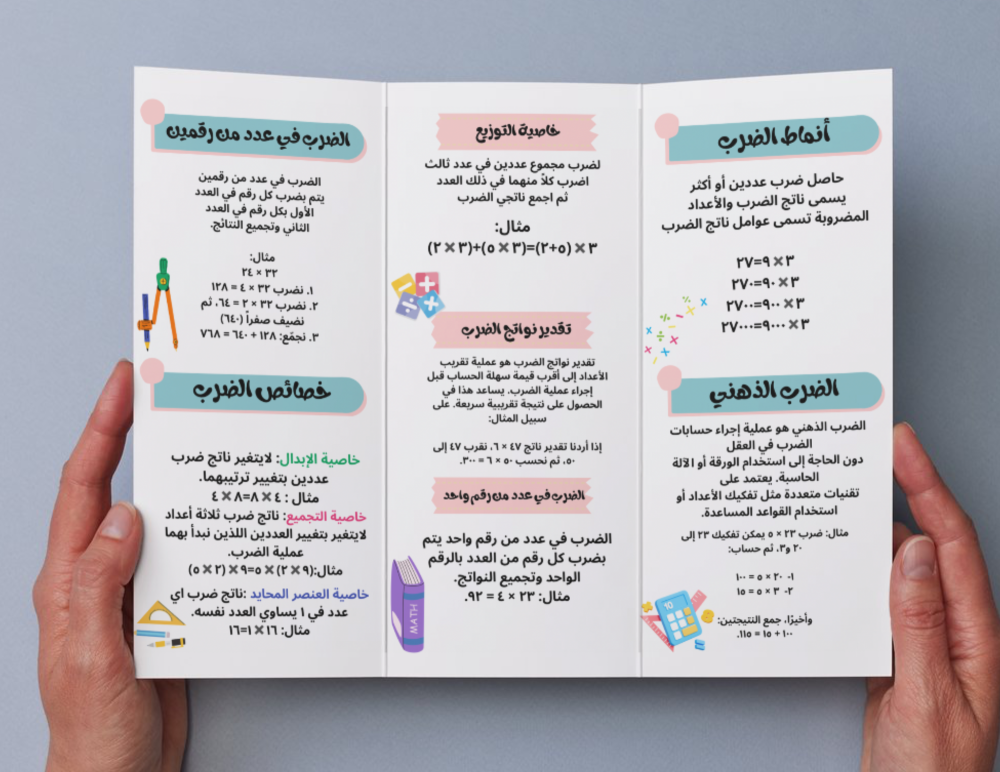 أنماط الضرب
حاصل ضرب عددين أو أكثر
يسمى ناتج الضرب والأعداد
المضروبة تسمى عوامل ناتج الضرب
٣ × ٩=٢٧
٣ × ٩٠=٢٧٠
٣ × ٩٠٠=٢٧٠٠
٣ × ٩٠٠٠=٢٧٠٠٠
الضرب الذهني
الضرب الذهني هو عملية إجراء حسابات
الضرب في العقل
دون الحاجة إلى استخدام الورقة أو الآلة
الحاسبة. يعتمد على
تقنيات متعددة مثل تفكيك الأعداد أو
استخدام القواعد المساعدة.
مثال: ضرب ٢٣ × ٥ يمكن تفكيك ٢٣ إلى
٢٠ و٣. ثم حساب:
١- ٢٠ × ٥ = ١٠٠
٢- ٣ × ٥ = ١٥
وأخيرًا، جمع النتيجتين:
١٠٠ + ١٥ = ١١٥.
خاصية التوزيع
لضرب مجموع عددين في عدد ثالث
اضرب كلاً منهما في ذلك العدد
ثم اجمع ناتجي الضرب
مثال:
٣ × (٥+٢)=(٣ × ٥)+(٣ × ٢)
تقدير نواتج الضرب
تقدير نواتج الضرب هو عملية تقريب
الأعداد إلى أقرب قيمة سهلة الحساب قبل
إجراء عملية الضرب. يساعد هذا في
الحصول على نتيجة تقريبية سريعة. على
سبيل المثال:
إذا أردنا تقدير ناتج ٤٧ × ٦، نقرب ٤٧ إلى
٥٠، ثم نحسب ٥٠ × ٦ = ٣٠٠.
الضرب في عدد من رقم واحد
الضرب في عدد من رقم واحد يتم
بضرب كل رقم من العدد بالرقم
الواحد وتجميع النواتج.
مثال: ٢٣ × ٤ = ٩٢.
MATH
الضرب في عدد من رقمين
الضرب في عدد من رقمين
يتم بضرب كل رقم في العدد
الأول بكل رقم في العدد
الثاني وتجميع النتائج.
مثال:
٣٢ × ٢٤
١. نضرب ٣٢ × ٤ = ١٢٨
٢. نضرب ٣٢ × ٢ = ٦٤، ثم
نضيف صفراً (٦٤٠)
٣. نجمّع: ١٢٨ + ٦٤٠ = ٧٦٨
خصائص الضرب
خاصية الإبدال: لايتغير ناتج ضرب
عددين بتغيير ترتيبهما.
مثال : ٤ × ٨=٨ × ٤
خاصية التجميع: ناتج ضرب ثلاثة أعداد
لايتغير بتغيير العددين اللذين نبدأ بهما
عملية الضرب.
مثال:(٩ × ٢) × ٥=٩ × (٢ × ٥)
خاصية العنصر المحايد :ناتج ضرب اي
عدد في ١ يساوي العدد نفسه.
مثال: ١٦ × ١=١٦